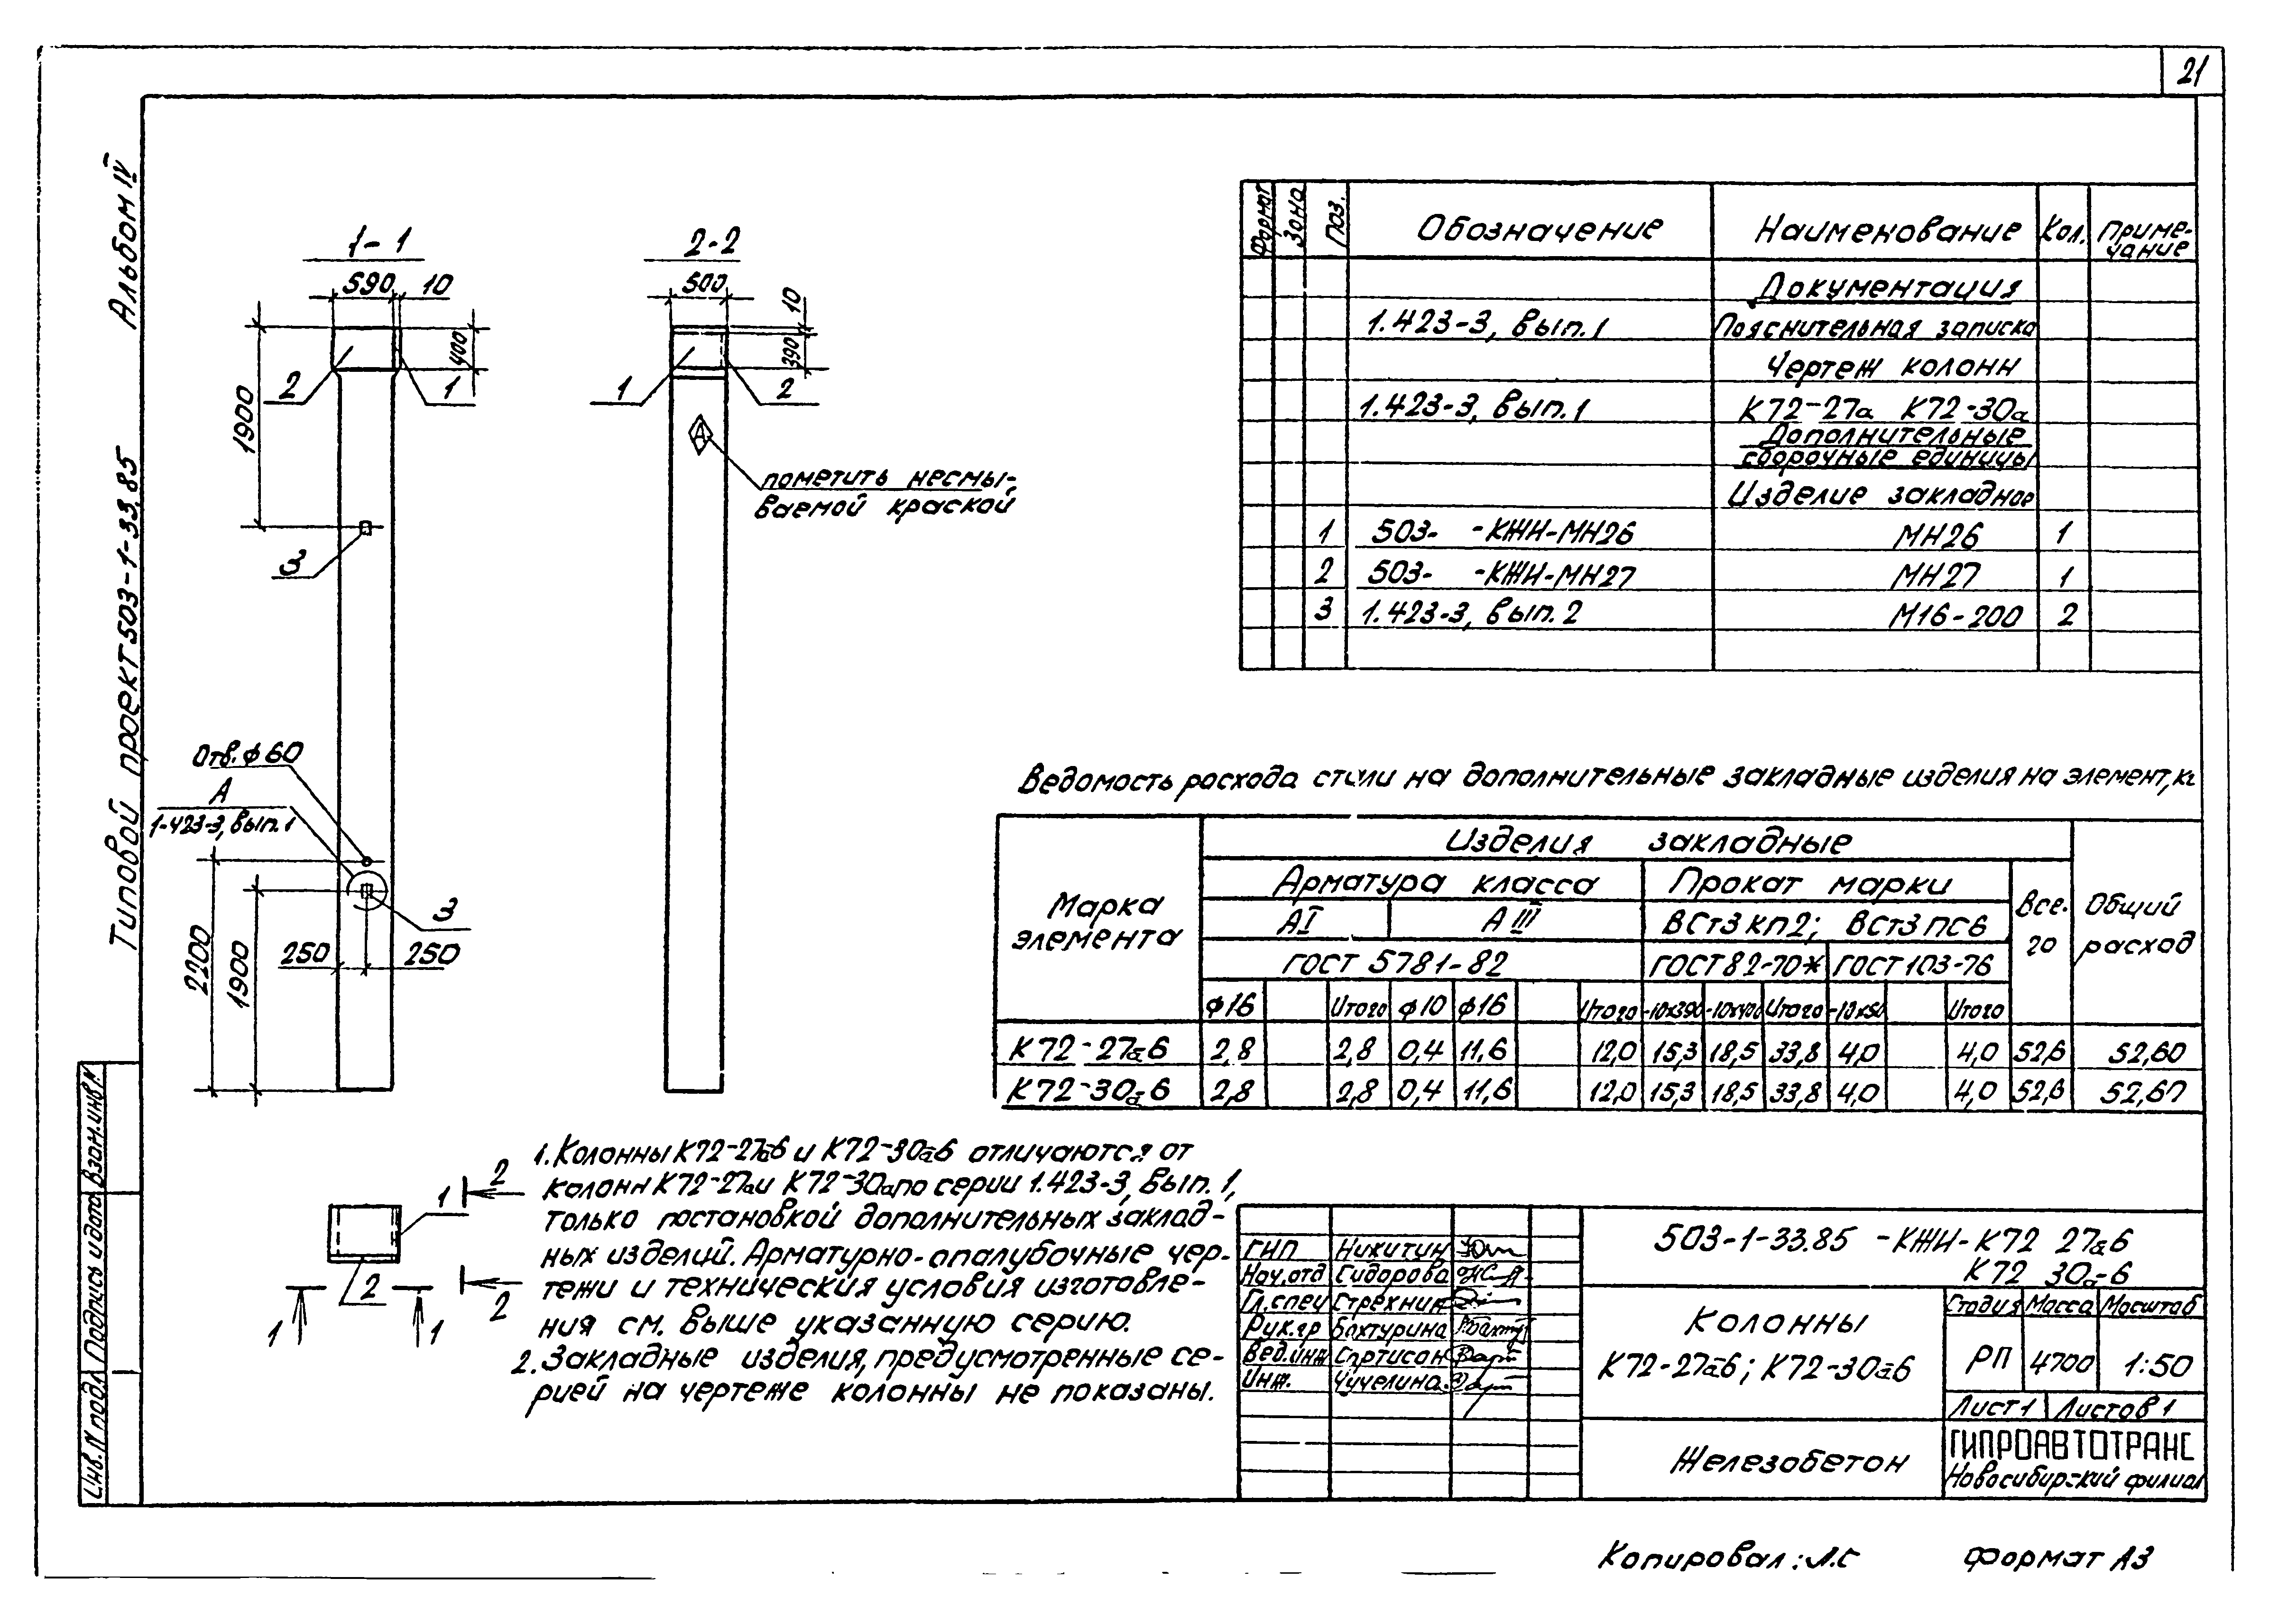 21
Альбом IV
Типовой проект 503-1-33.85
1-1
590 10
400
1900
2
1
3
Отв. ф 60
А
1-423-3, вып. 1
3
250 250
2200
1900
2-2
500
10
390
1
2
А
пометить несмы-
ваемой краской
Формат Зона Поз. Обозначение Наименование Кол. Приме-
чание
Документация
1.423-3, вып. 1 Пояснительная записка
Чертеж колонн
1.423-3, вып. 1 К72-27а К72-30а
Дополнительные
сборочные единицы
Изделие закладное
1 503- -КЖИ-МН26 МН26 1
2 503- -КЖИ-МН27 МН27 1
3 1.423-3, вып. 2 М16-200 2
Ведомость расхода стали на дополнительные закладные изделия на элемент, кг
Марка
элемента
Изделия закладные
Арматура класса Прокат марки
Все-
го
Общий
расход
АI АIII ВСт3 кп2; ВСт3 пс6
ГОСТ 5781-82 ГОСТ 82-70* ГОСТ 103-76
ф16 Итого ф10 ф16 Итого -10х390 -10х400 Итого Итого
К72-27а-6 2,8 2,8 0,4 11,6 12,0 15,3 18,5 33,8 4,0 4,0 52,6 52,60
К72-30а-6 2,8 2,8 0,4 11,6 12,0 15,3 18,5 33,8 4,0 4,0 52,6 52,60
1. Колонны К72-27а-6 и К72-30а-6 отличаются от
колонн К72-27а и К72-30а по серии 1.423-3, Вып. 1,
только постановкой дополнительных заклад-
ных изделий. Арматурно-опалубочные чер-
тежи и технический условия изготовле-
ния см. выше указанную серию.
2. Закладные изделия, предусмотренные се-
рией на чертеже колонны не показаны.
1
2
2
2
1 1
ГИП Никитин
Нач.отд Сидорова
Гл.спец Стрехнин
Рук.гр Бахтурина
Вед.инж Сартисон
Инж. Чучелина
503-1-33.85 -КЖИ-К72 27а-6
К72 30а-6
Колонны
К72-27а-6; К72-30а-6
Стадия Масса Масштаб
РП 4700 1:50
Лист 1 Листов 1
Железобетон
ГИПРОАВТОТРАНС
Новосибирский филиал
Инв. N подл. Подпись и дата Взам. инв. N
Копировал: Л.С Формат А3